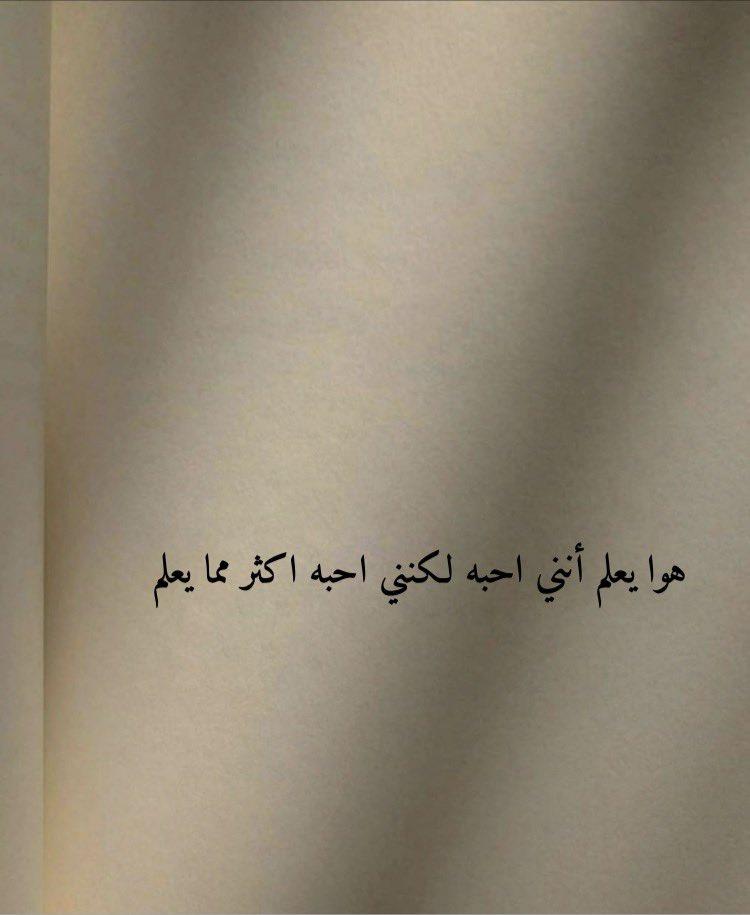 هوا يعلم أنني احبه لكنني احبه اكثر مما يعلم